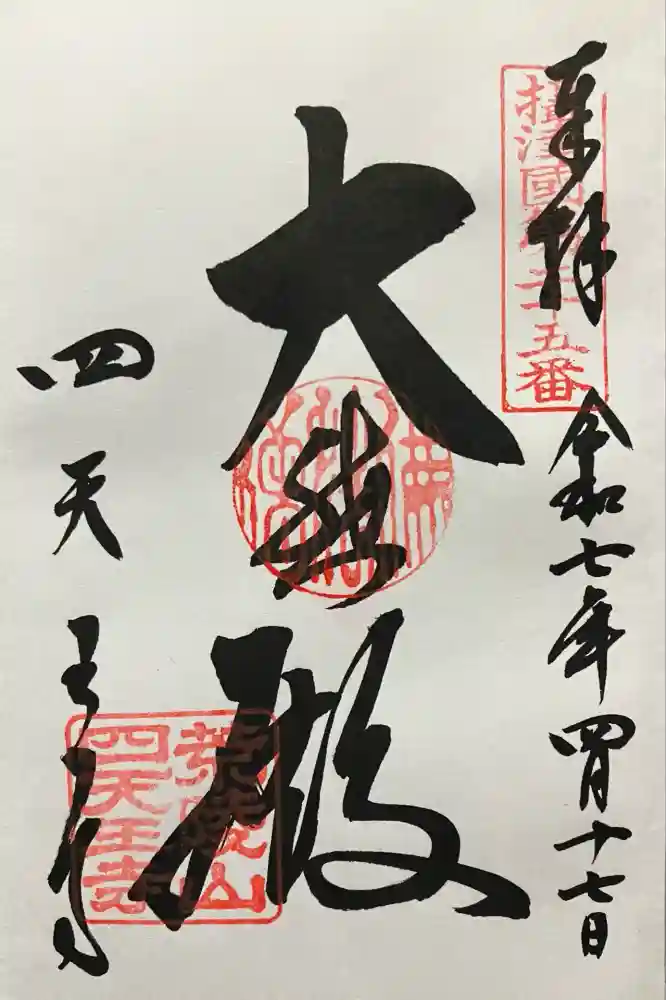 奉拝
摂津國第二十五番
令和七年四月十七日
大悲殿
四天王寺
荒陵山
四天王寺